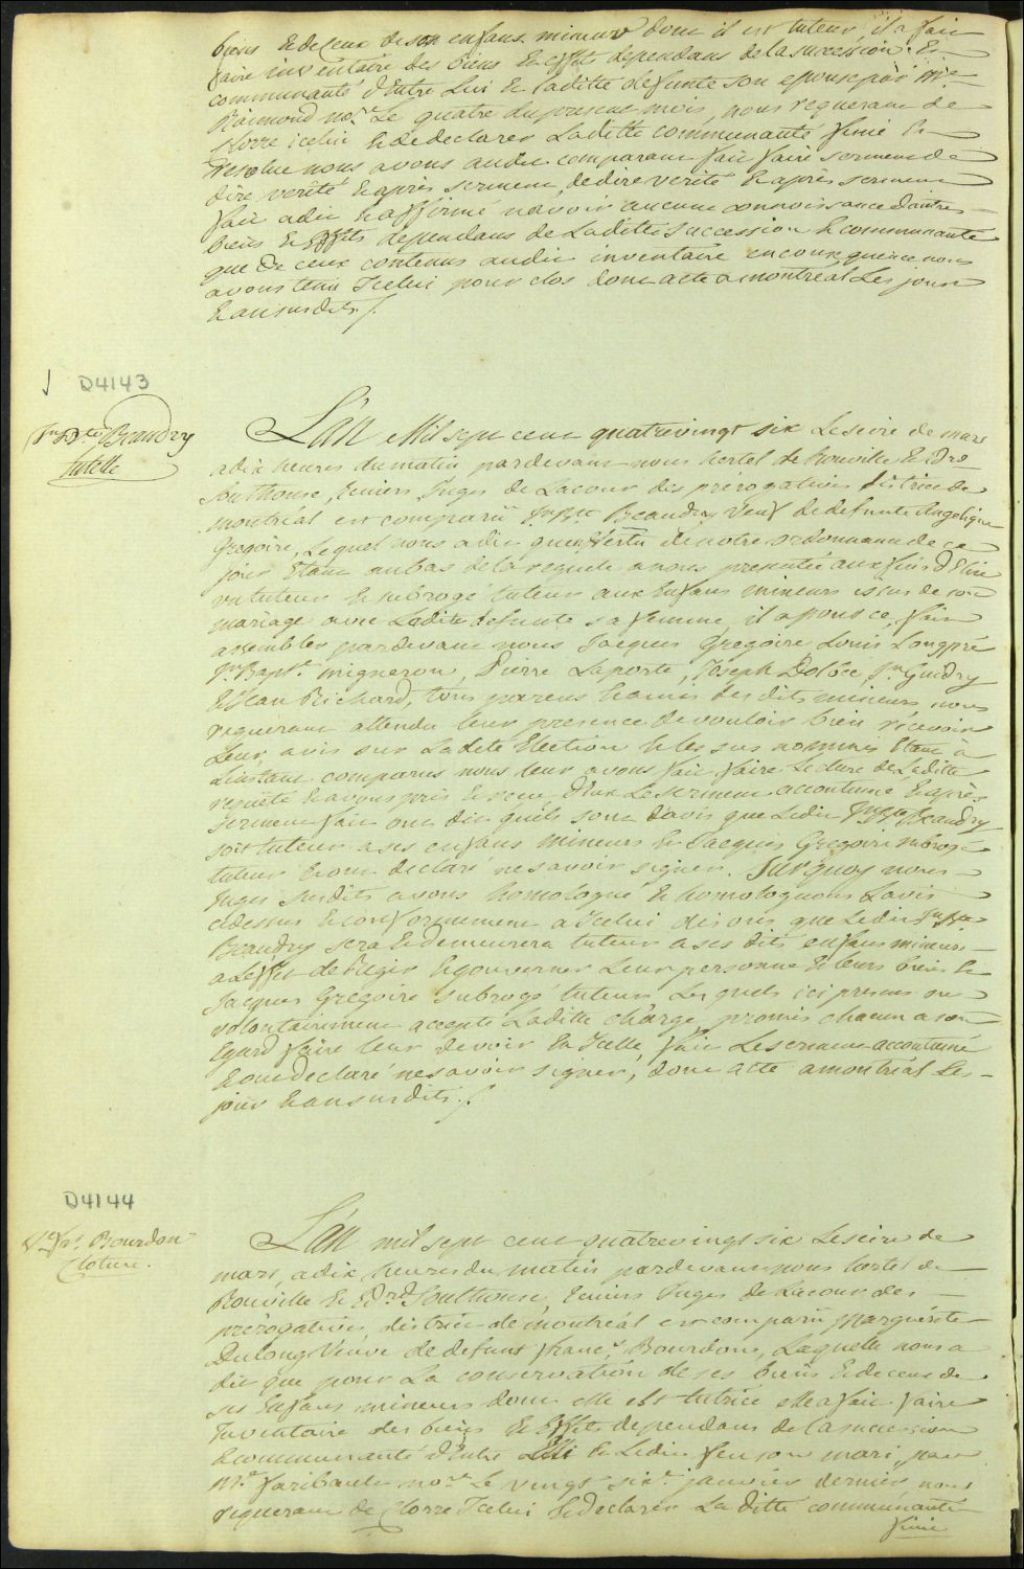 biens & de ceux de ses enfans mineurs dont il est tuteur, il a fait
faire inventaire des biens & effets dependans de la succession &
communauté d'Entre Lui & laditte defunte son epouse par Mre
Raimond nore Le quatre du present mois, nous requerant de
Clorre icelui & de declarer Laditte communauté finie &
Resolue nous avons audit comparant fait faire serment de
dire verité & après serment de dire verité & après serment
fait a dit & affirmé n'avoir aucune connoissance d'autres
biens & Effets dependans de Laditte succession & communauté
que de ceux contenus audit inventaire en consequence nous
avons tenu Icelui pour clos dont acte a montréal Les jour
& an susdits /.
D4143
Jn Bte Beaudry
tutelle
L'an Mil sept cent quatrevingt six Le seize de mars
a dix heures du matin pardevant nous hertel de Rouville & Edrd
Southouse, Ecuiers Juges de La cour des prérogatives district de
montréal est comparu Jn Bte Beaudry Veuf de defunte Angelique
Gregoire, Lequel nous a dit qu'en Vertu de notre ordonnance de ce
jour Etant au bas de la requete a nous presentée aux fins d'Elire
un tuteur & subrogé tuteur aux Enfans mineurs issus de son
mariage avec Ladite defunte sa femme, il a pour ce fait
assembler pardevant nous Jacques Gregoire, Louis Longpré
Jn Bapt. migneron, Pierre Laporte, Joseph Dolbec, Jn Guidry
& Jean Richard, tous parens & amis des dits mineurs, nous
requerant attendu leur presence de vouloir bien recevoir
Leur avis sur Ladite Election & les sus nommés Etant à
L'instant comparus nous leur avons fait faire Lecture de Laditte
requête & avons pris & reçu d'Eux Le serment accoutumé & après
serment fait ont dit qu'ils sont d'avis que Ledit Jn Bte Beaudry
soit tuteur a ses enfans mineurs & Jacques Gregoire subrogé
tuteur & ont declaré ne savoir signer. Surquoy nous
Juges susdits avons homologué & homologuons L'avis
cidessus & conformement a Icelui disons que Ledit Jn Bte
Beaudry sera & demeurera tuteur a ses dits enfans mineurs
a L'effet de Regir & gouverner Leur personne & leurs biens &
Jacques Gregoire subrogé tuteur Lesquels ici presens ont
volontairement accepté Laditte charge, promis chacun a son
Egard faire leur devoir En Icelle, fait Le serment accoutumé
& ont declaré ne savoir signer, dont acte a montréal Les
jour & an susdits. /.
D4144
Ve Frs Bourdon
Cloture.
L'an mil sept cent quatrevingt six Le seize de
mars, a dix heures du matin pardevant nous hertel de
Rouville & Edrd Southouse, Ecuiers Juges de La cour des
prérogatives, district de montréal est comparu Marguerite
Dulong Veuve de defunt francs Bourdon, Laquelle nous a
dit que pour La conservation de ses biens & de ceux de
ses Enfans mineurs dont elle est tutrice elle a fait faire
Inventaire des biens & Effets dependans de la succession
& communauté d'Entre Elle & Ledit feu son mari, par
Mre Faribault nore Le vingt six janvier dernier, nous
requerant de Clorre Icelui & declarer La ditte communauté
finie